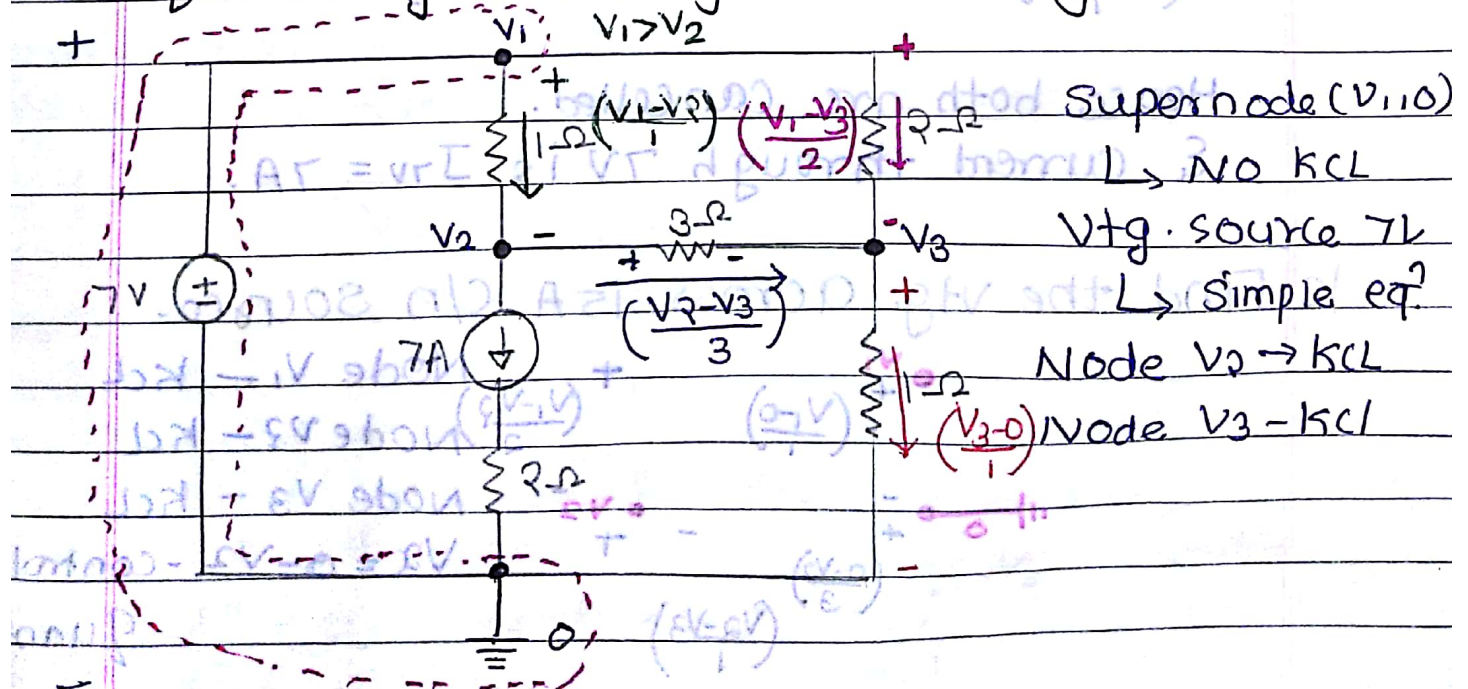 + V1 V1>V2 +
+
1Ω (V1-V2)/1 (V1-V3)/2 2Ω Supernode (V1,0)
↳ NO KCL
V2 - 3Ω - V3 Vtg. source 7V
+ -
7V + (V2-V3)/3 + ↳ Simple eqn
7A Node V2 → KCL
1Ω
(V3-0)/1 Node V3 - KCL
2Ω
-
0
-